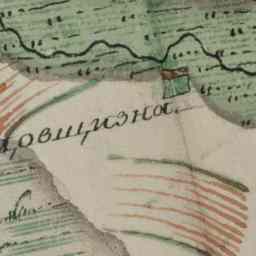 довщизна